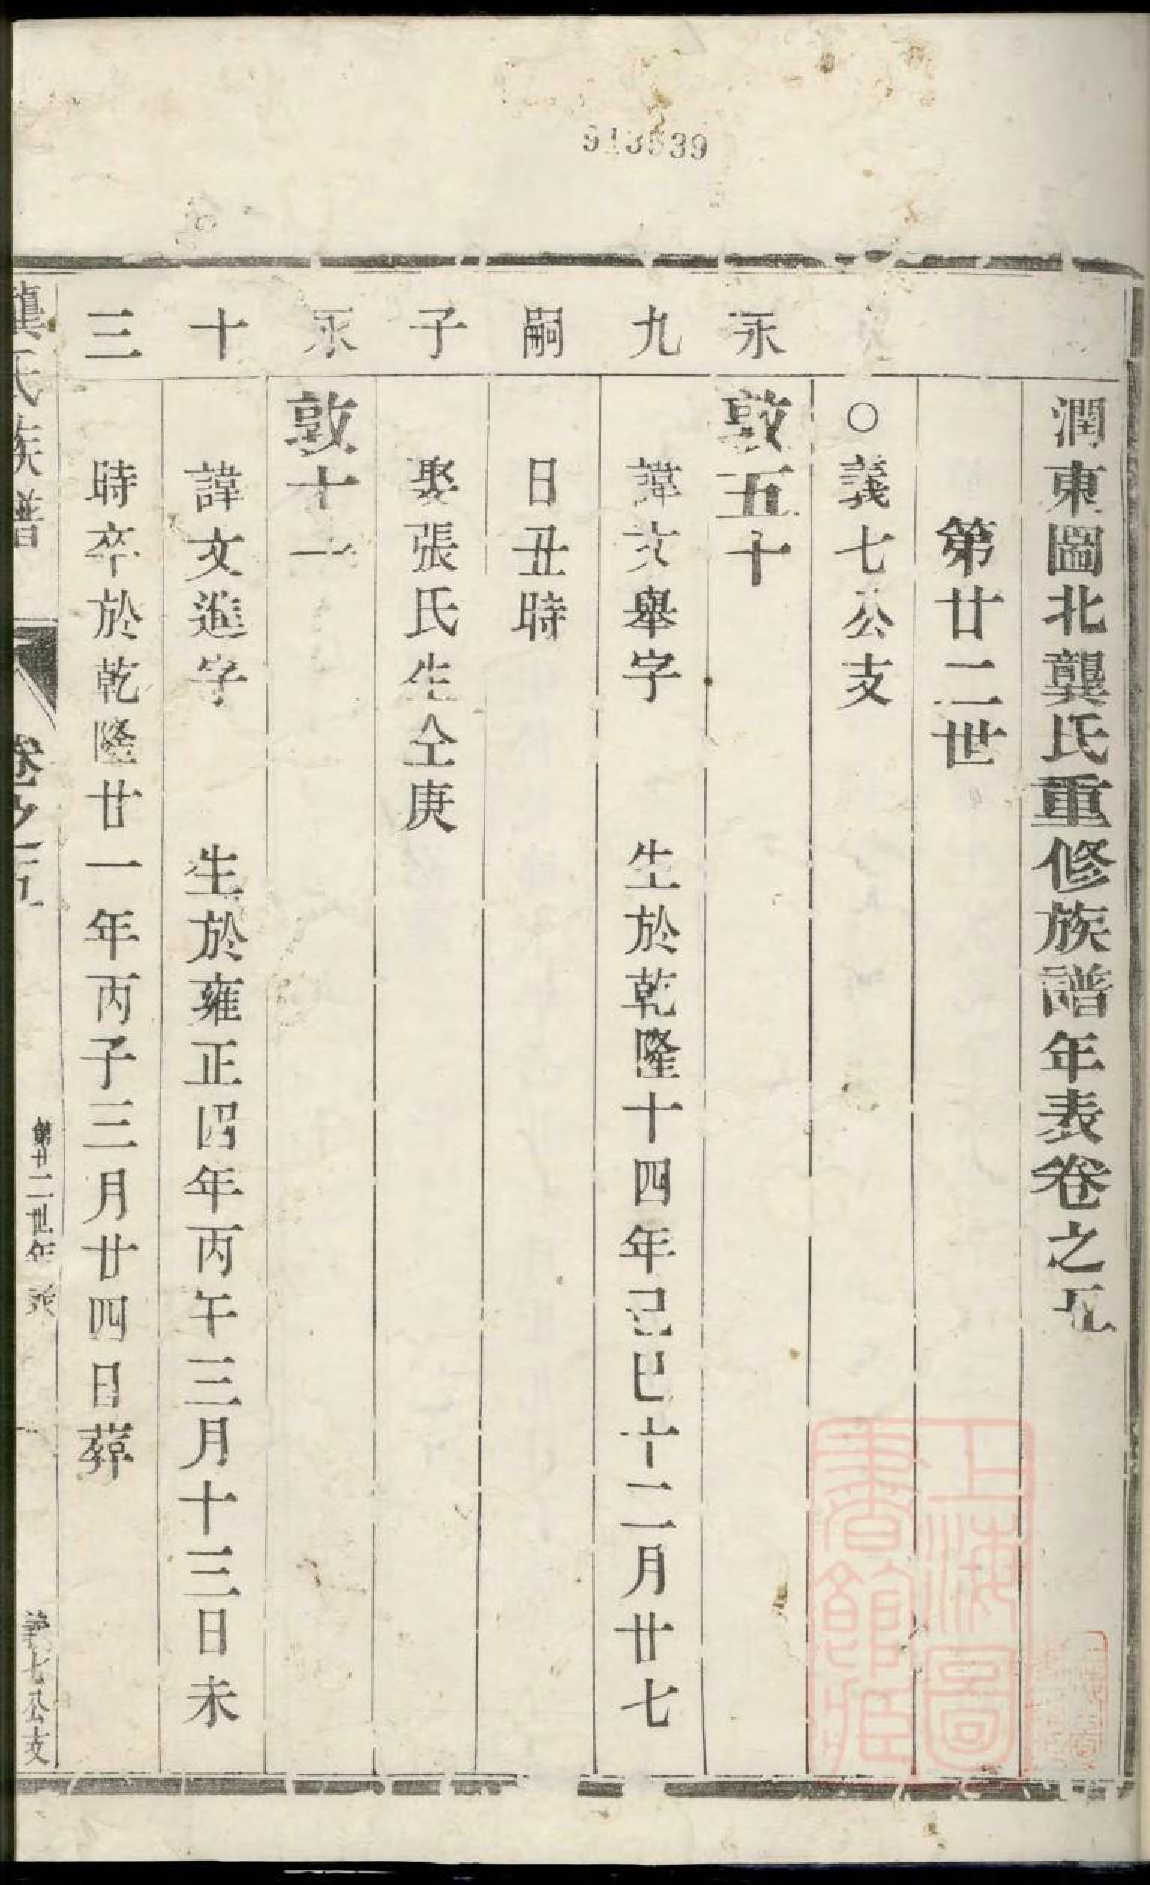 潤東圖北龔氏重修族譜年表卷之五
第廿二世
○義七公支
永
敦五十
九
諱文舉字 生於乾隆十四年己巳十二月廿七
嗣
日丑時
子
娶張氏生仝庚
永
敦十一
十
諱文進字 生於雍正四年丙午三月十三日未
三
時卒於乾隆廿一年丙子三月廿四日葬
龔氏族譜
卷之五
第廿二世年表
一
義七公支
上海圖書館藏